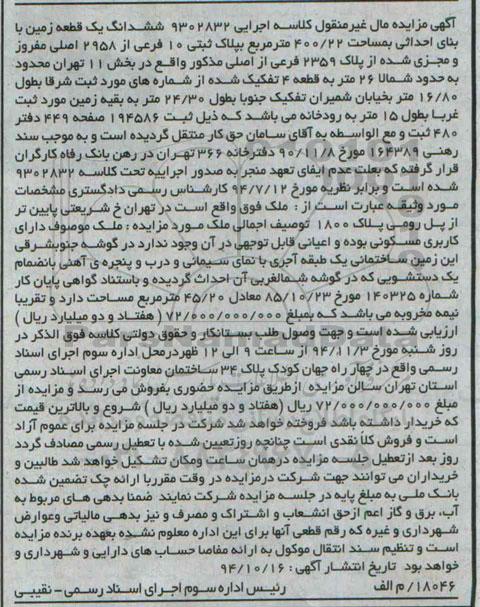 آگهی مزایده مال غیرمنقول کلاسه اجرایی ۹۳۰۲۸۳۲ ششدانگ یک قطعه زمین با
بنای احداثی بمساحت ۴۰۰/۲۲ مترمربع بپلاک ثبتی ۱۰ فرعی از ۲۹۵۸ اصلی مفروز
و مجزی شده از پلاک ۲۳۵۹ فرعی از اصلی مذکور واقع در بخش ۱۱ تهران محدود
به حدود شمالا ۲۶ متر به قطعه ۴ تفکیک شده از شماره های مورد ثبت شرقا بطول
۱۶/۸۰ متر بخیابان شمیران تفکیک جنوبا بطول ۲۴/۳۰ متر به بقیه زمین مورد ثبت
غربا بطول ۱۵ متر به رودخانه می باشد که ذیل ثبت ۱۹۴۵۸۶ صفحه ۴۴۹ دفتر
۴۸۰ ثبت و مع الواسطه به آقای سامان حق کار منتقل گردیده است و به موجب سند
رهنی ۱۶۴۳۸۹ مورخ ۹۰/۱۱/۸ دفترخانه ۳۶۶ تهران در رهن بانک رفاه کارگران
قرار گرفته که بعلت عدم ایفای تعهد منجر به صدور اجراییه تحت کلاسه ۹۳۰۲۸۳۲
شده است و برابر نظریه مورخ ۹۴/۷/۱۲ کارشناس رسمی دادگستری مشخصات
مورد وثیقه عبارت است از : ملک فوق واقع است در تهران خ شریعتی پایین تر
از پل رومی پلاک ۱۸۰۰ توصیف اجمالی ملک مورد مزایده : ملک موصوف دارای
کاربری مسکونی بوده و اعیانی قابل توجهی در آن وجود ندارد در گوشه جنوبشرقی
این زمین ساختمانی یک طبقه آجری با نمای سیمانی و درب و پنجره ی آهنی بانضمام
یک دستشویی که در گوشه شمالغربی آن احداث گردیده و باستناد گواهی پایان کار
شماره ۱۴۰۳۲۵ مورخ ۸۵/۱۰/۲۳ معادل ۴۵/۲۰ مترمربع مساحت دارد و تقریبا
نیمه مخروبه می باشد که بمبلغ ۷۲/۰۰۰/۰۰۰/۰۰۰ ( هفتاد و دو میلیارد ریال )
ارزیابی شده است و جهت وصول طلب بستانکار و حقوق دولتی کلاسه فوق الذکر در
روز شنبه مورخ ۹۴/۱۱/۳ از ساعت ۹ الی ۱۲ ظهردرمحل اداره سوم اجرای اسناد
رسمی واقع در چهار راه جهان کودک پلاک ۳۴ ساختمان معاونت اجرای اسناد رسمی
استان تهران سالن مزایده ازطریق مزایده حضوری بفروش می رسد و مزایده از
مبلغ ۷۲/۰۰۰/۰۰۰/۰۰۰ ریال (هفتاد و دو میلیارد ریال ) شروع و بالاترین قیمت
که خریدار داشته باشد فروخته خواهد شد شرکت در جلسه مزایده برای عموم آزاد
است و فروش کلاً نقدی است چنانچه روزتعیین شده با تعطیل رسمی مصادف گردد
روز بعد ازتعطیل جلسه مزایده درهمان ساعت ومکان تشکیل خواهد شد طالبین و
خریداران می توانند جهت شرکت درمزایده در وقت مقرربا ارائه چک تضمین شده
بانک ملی به مبلغ پایه در جلسه مزایده شرکت نمایند ضمنا بدهی های مربوط به
آب، برق و گاز اعم ازحق انشعاب و اشتراک و مصرف و نیز بدهی مالیاتی وعوارض
شهرداری و غیره که رقم قطعی آنها برای این اداره معلوم نشده بعهده برنده مزایده
است و تنظیم سند انتقال موکول به ارائه مفاصا حساب های دارایی و شهرداری و
خواهد بود تاریخ انتشار آگهی : ۹۴/۱۰/۱۶
۱۸۰۴۶/م الف رئیس اداره سوم اجرای اسناد رسمی - نقیبی